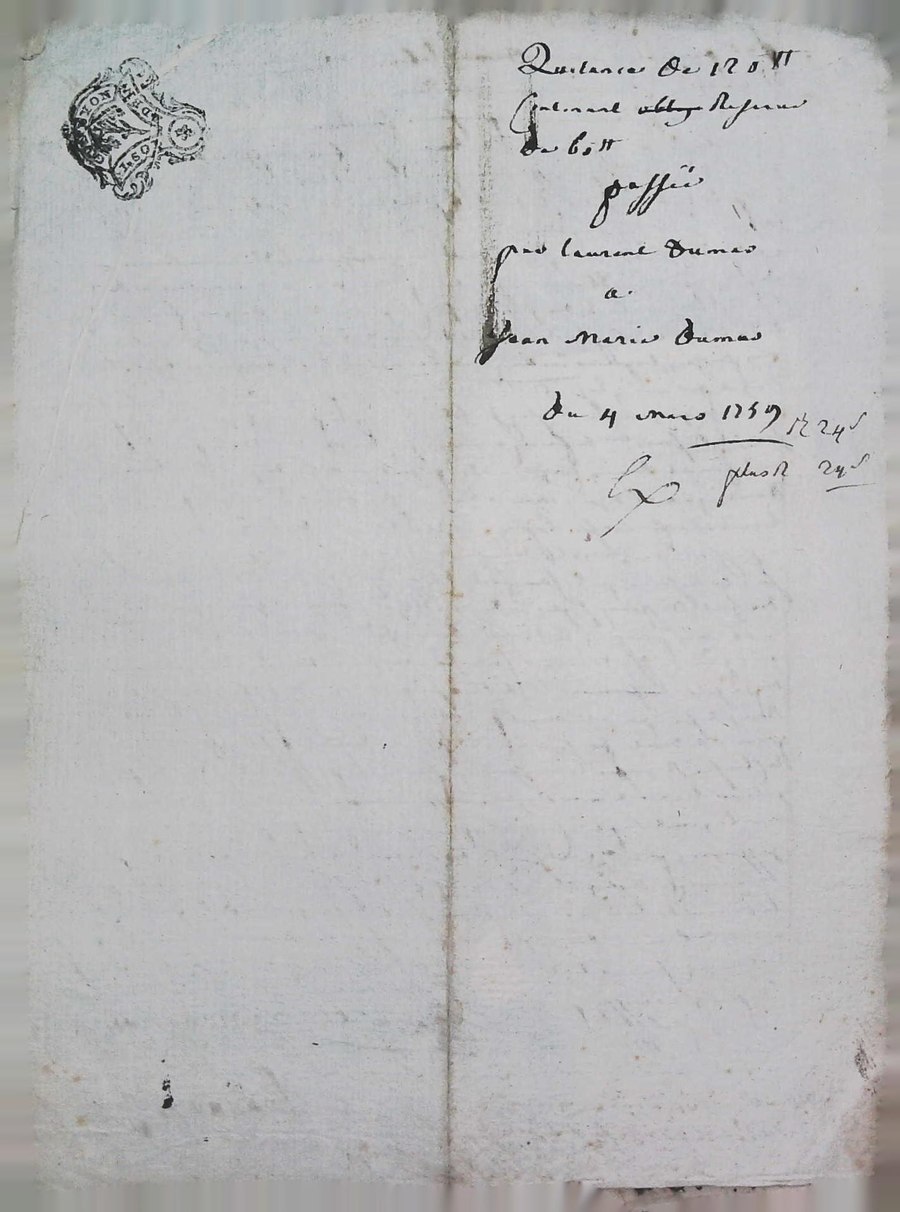 Quittance de 120 ₶
Contenant oblige Reserve
De 60₶
passéé
par laurent Dumas
a
Jean Marie Dumas
du 4 Mars 1759
24ˢ
plus 24ˢ